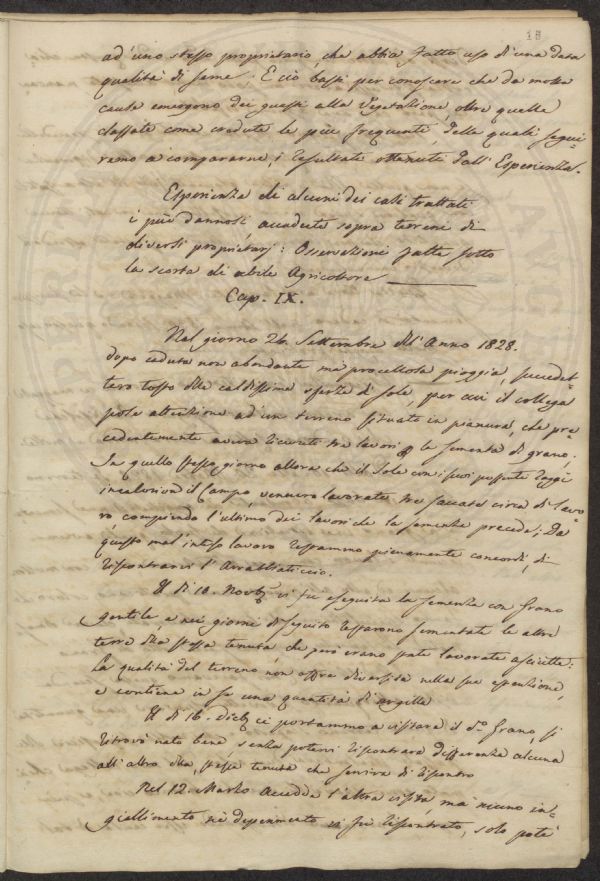 18
ad'uno stesso proprietario, che abbia fatto uso di una data
qualità di seme. E ciò basti per conoscere che da molte
cause emergono dei guasti alla vegetazione, oltre quelle
classate come credute le più frequenti, delle quali segui-
remo a compararne, i resultati ottenuti dall'Esperienza.
Esperienza di alcuni dei casi trattati
i più dannosi accaduti sopra terreni di
diversi proprietarj: Osservazioni fatte sotto
la scorta di abile Agricoltore
Cap. IX.
Nel giorno 26. Settembre dell'Anno 1828.
dopo caduta non abondante ma procellosa pioggia, succedet-
tero tosto delle caldissime sferze di sole, per cui il collega
pose attenzione ad'un terreno situato in pianura, che pre-
cedentemente aveva ricevuti tre lavori la sementa di grano;
In quello stesso giorno allora che il Sole con i suoi possenti raggi
incaloriva il Campo, vennero lavorate tre saccate circa di lavo-
ro, compiendo l'ultimo dei lavori che la semente precede; Da
questo mal'inteso lavoro restammo pienamente concordi, di
riscontrarvi l'Arrabbiaticcio.
Il dì 10. Novb. vi fu eseguita la semenza con Grano
gentile e nei giorni di seguito restarono sementate le altre
terre della stessa tenuta che però erano state lavorate asciutte:
La qualità del terreno non offre diversità nella sua estenzione,
e contiene in se una quantità di argilla
Il dì 16. Dicb. ci portammo a visitare il do. Grano si
ritrovò nato bene, senza potervi riscontrare differenza alcuna
all'altro della stessa tenuta che serviva di riscontro
Nel 12. Marzo accadde l'altra visita, ma niuno in-
giallimento nè deperimento vi fù riscontrato, solo potè